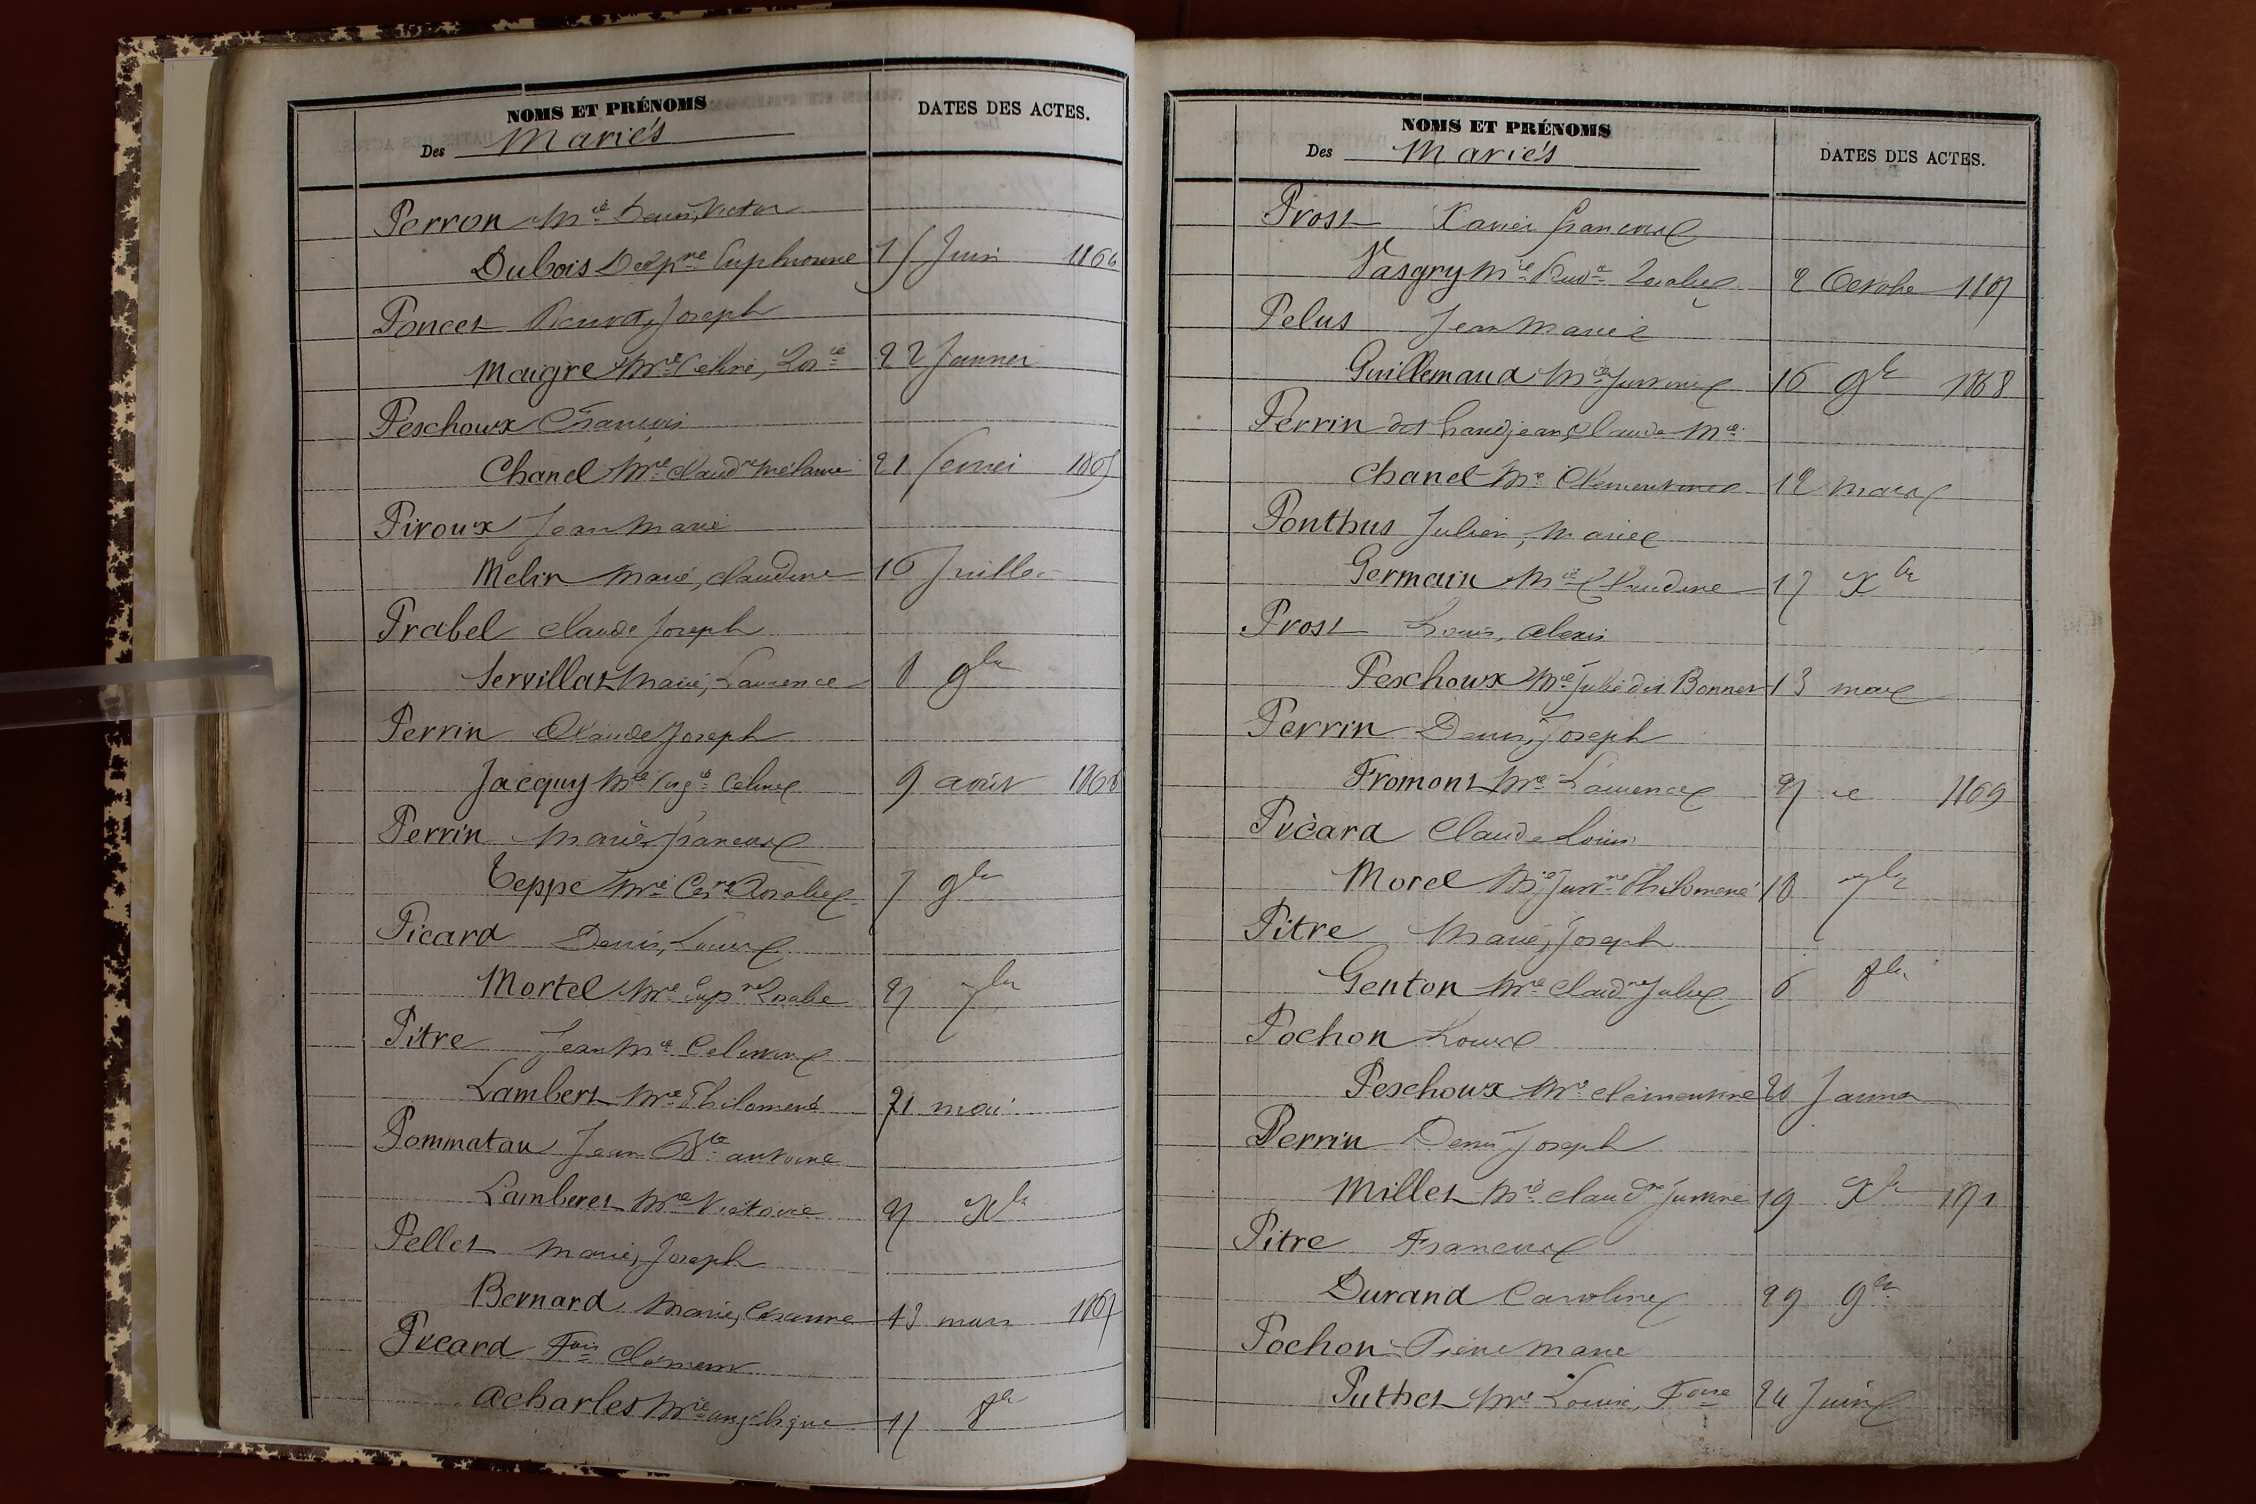 NOMS ET PRÉNOMS
Des Mariés
DATES DES ACTES.
Perron Mie Denis, Victor
Dubois Euphrosine 15 Juin 1864
Poncet Joseph
Maigre Mie Céline, 22 Janvier
Peschoux François
Chanel Mie Claudne Mélanie 21 fevrier 1865
Piroux Jean Marie
Melin Marie, Claudine 16 Juillet
Prabel Claude Joseph
Servillat Marie, Laurence 8 9bre
Perrin Claude Joseph
Jacquy Mie Virgie Celine 9 aout 1866
Perrin Marie, francois
Teppe Mie Rosalie 7 9bre
Picard Denis, Louis
Mortel Mie Rosalie 27 7bre
Pitre Jean Mie Celestin
Lambert Mie Philomene 21 mai
Pommatau Jean Bte antoine
Lamberet Mie Victoire 27 Xbre
Pellet Marie, Joseph
Bernard Marie, 13 mars 1867
Picard Fois Clément
Acharles Mie angélique 11 8bre
NOMS ET PRÉNOMS
Des Mariés
DATES DES ACTES.
Prost Xavier francois
Vasgry Mie Rosalie 2 Octobre 1867
Pelus Jean Marie
Guillemaud Mie Justine 16 9bre 1868
Perrin dit Grandjean, Claude Mie
Chanel Mie Clementine 12 mars
Ponthus Julien, Marie
Germain Mie Claudine 17 Xbre
Prost Louis, Alexis
Peschoux Mie Julie dit Bonnet 13 mai
Perrin Denis, Joseph
Fromont Mie Laurence 27 1869
Picard Claude Louis
Morel Mie Philomene 18 7bre
Pitre Marie, Joseph
Genton Mie Claudne Julie 6 8bre
Pochon Louis
Peschoux Mie Clementine 20 Janvier
Perrin Denis Joseph
Millet Mie Claudne Justine 19 Xbre 1871
Pitre Francois
Durand Caroline 29 9bre
Pochon Pierre Marie
Puthet Mie Louise, Foise 24 Juin